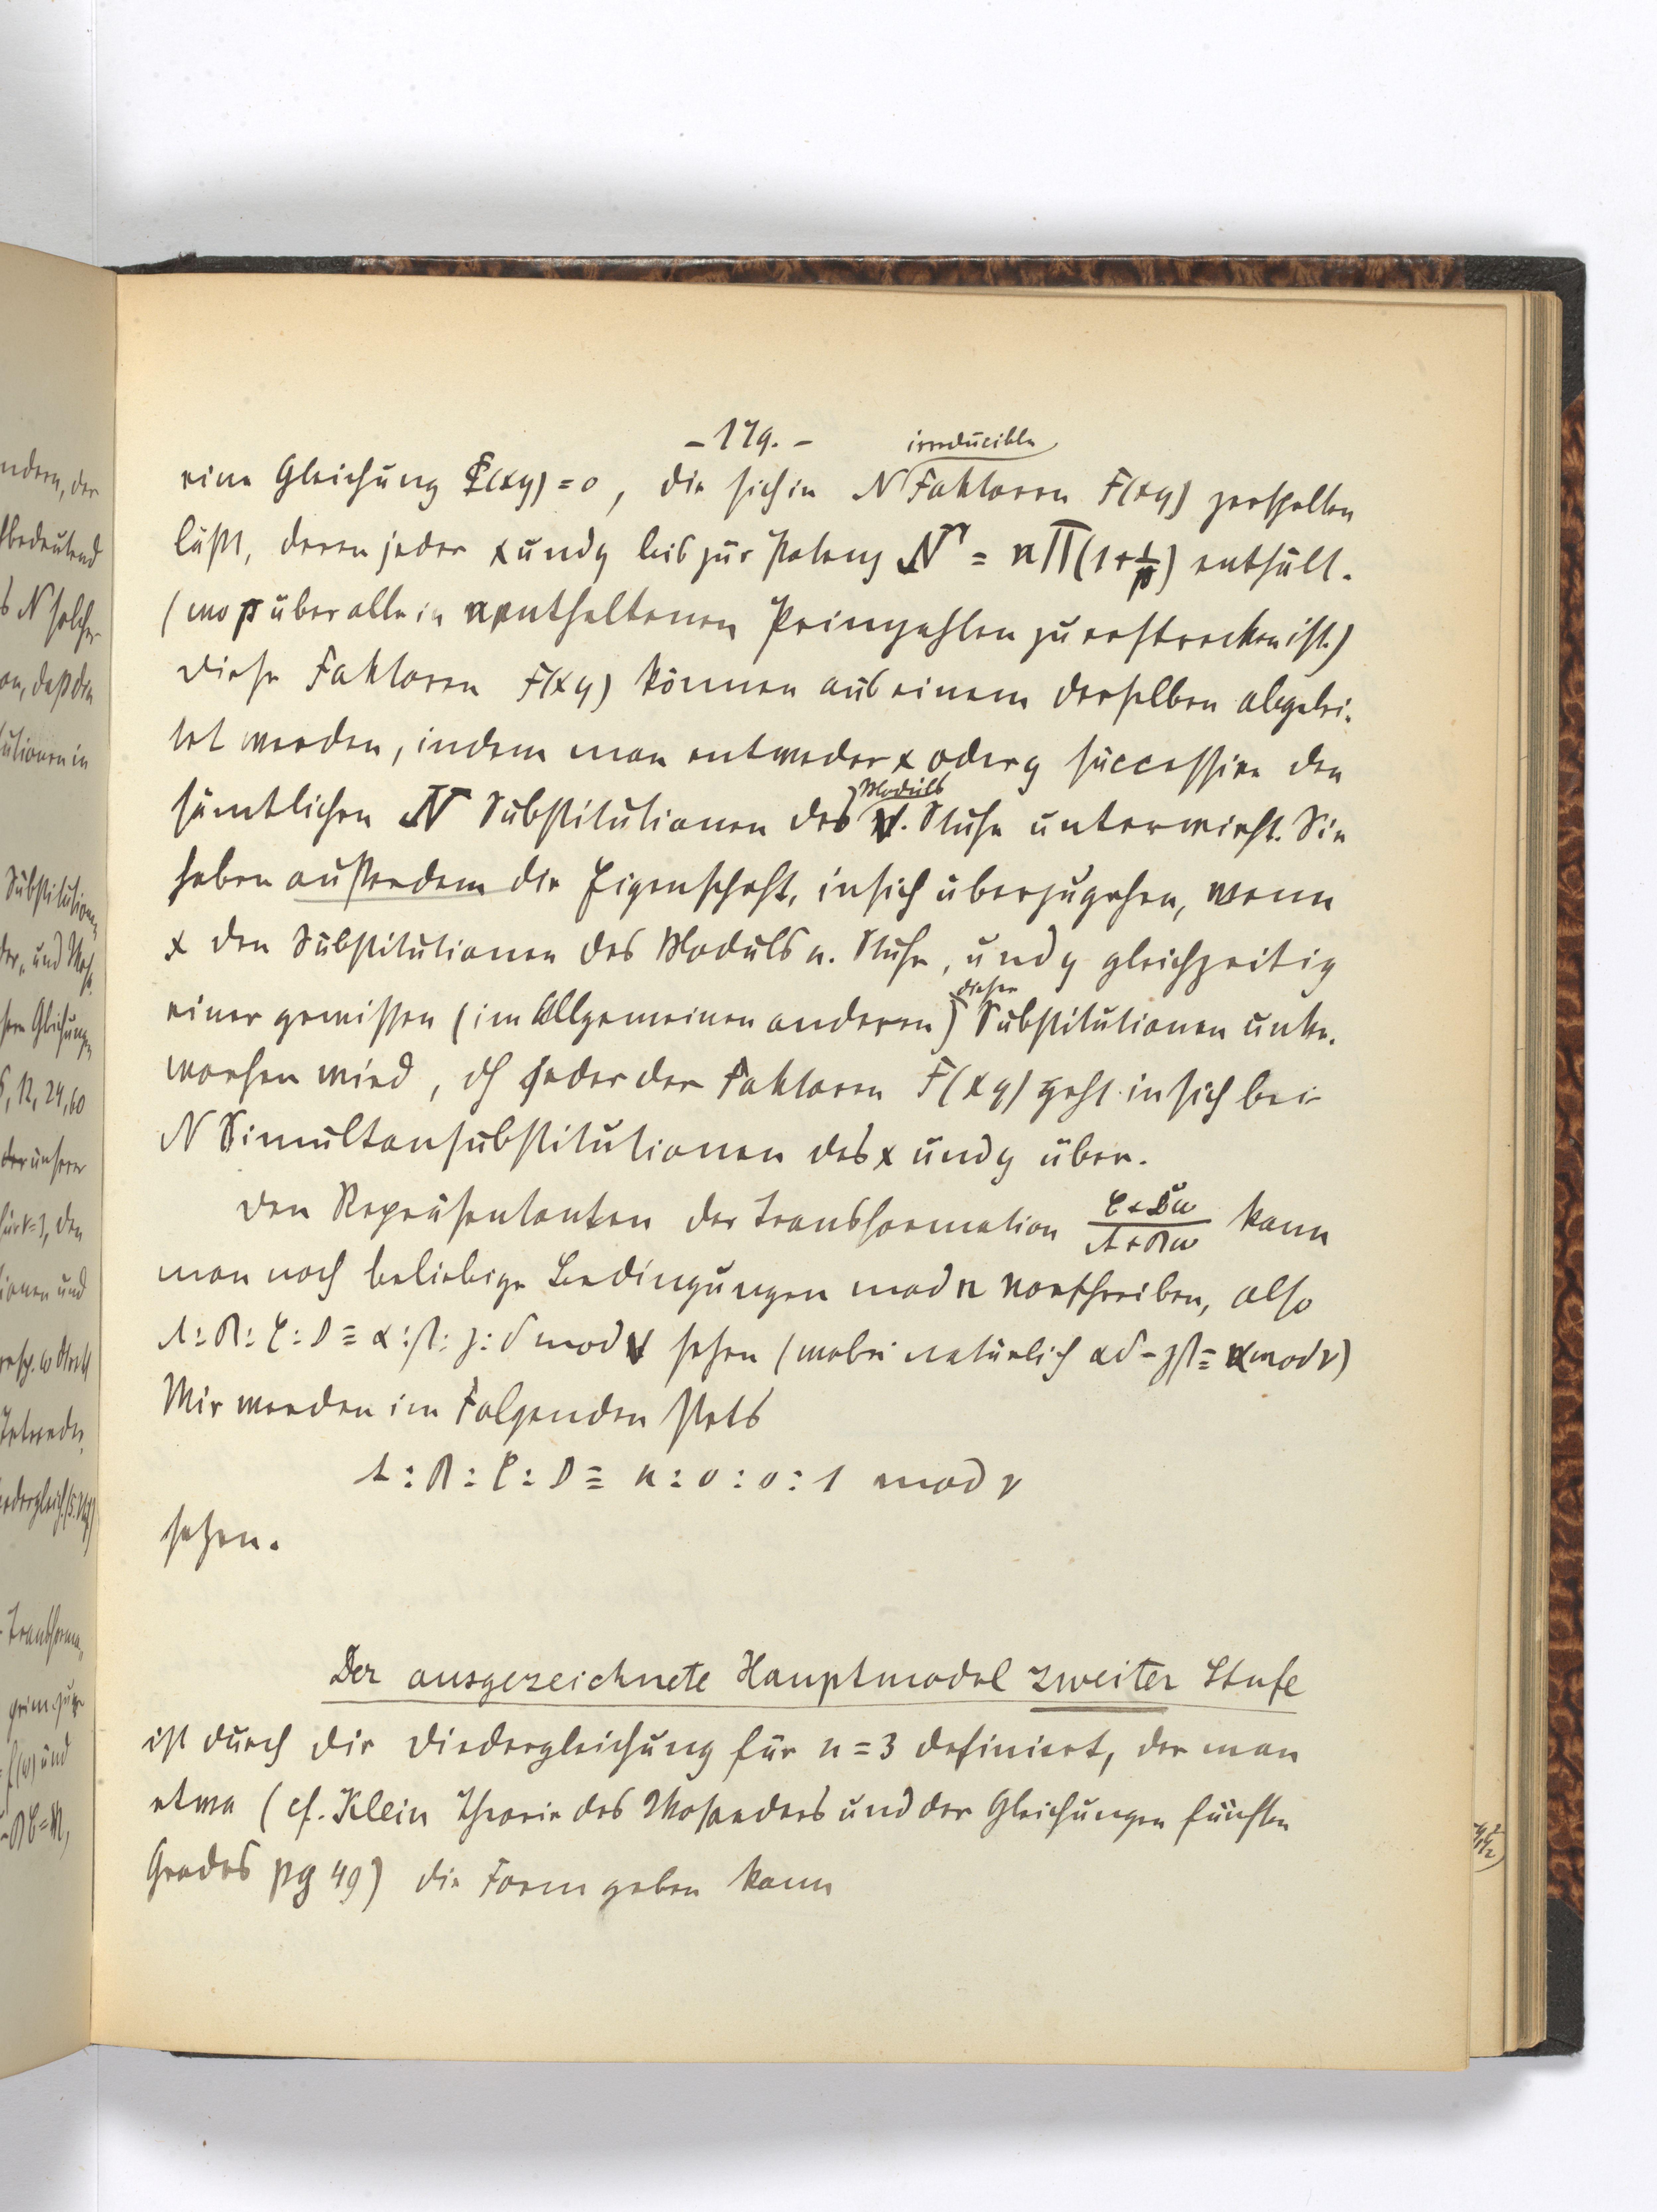 ndern, der
bedeutend
s N solcher
on, daß den
tutionen in
Substitutionen
der, und
sere Gleichungen
6, 12, 24, 60
der unserer
für ν=3, den
tionen und
resp. ω
Tetraeder
edergleich.
- Transforma-
prim zu
f(ω) und
- 179. -
irreducible
eine Gleichung Φ(xy) = 0, die sich in N Faktoren F(xy) zerspalten
läßt, deren jeder x und y bis zur Potenz N' = n∏(1+1/p) enthält.
(wo p über alle in n enthaltenen Primzahlen zu erstrecken ist.)
Diese Faktoren F(xy) können aus einem derselben abgelei-
tet werden, indem man entweder x oder y successive den
Moduls
sämtlichen N Substitutionen des ν. Stufe unterwirft. Sie
haben außerdem die Eigenschaft, in sich überzugehen, wenn
x den Substitutionen des Moduls n. Stufe, und y gleichzeitig
dieser
einer gewissen (im Allgemeinen anderen) Substitutionen unter-
worfen wird, dh jeder der Faktoren F(xy) geht in sich bei
N Simultansubstitutionen des x und y über.
Den Repräsentanten der Transformation (C+Dω)/(A+Bω) kann
man noch beliebige Bedingungen mod n vorschreiben, also
A:B:C:D ≡ α:β:γ:δ mod ν sehen (wobei natürlich αδ-γβ ≡ n mod ν)
Wir werden im Folgenden stets
A : B : C : D ≡ n : 0 : 0 : 1 mod ν
setzen.
Der ausgezeichnete Hauptmodul zweiter Stufe
ist durch die Diedergleichung für n = 3 definiert, der man
etwa (cf. Klein Theorie des Ikosaeders und der Gleichungen fünften
Grades pg 49) die Form geben kann